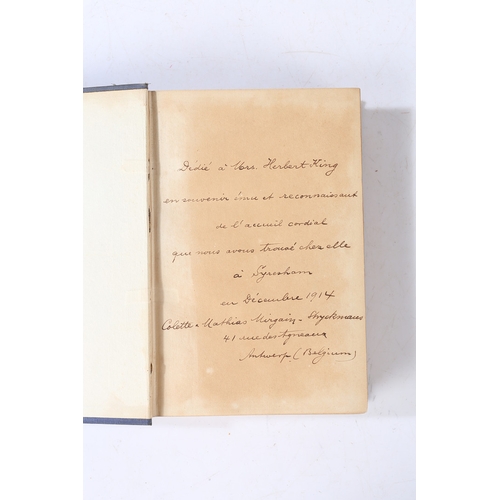 Dédié à Mrs. Herbert King
en souvenir ému et reconnaissant
de l'accueil cordial
que nous avons trouvé chez elle
à Syresham
en Décembre 1914
Colette & Mathias Mirgain - Stryckmans
41 rue des Agneaux
Antwerp. (Belgium)